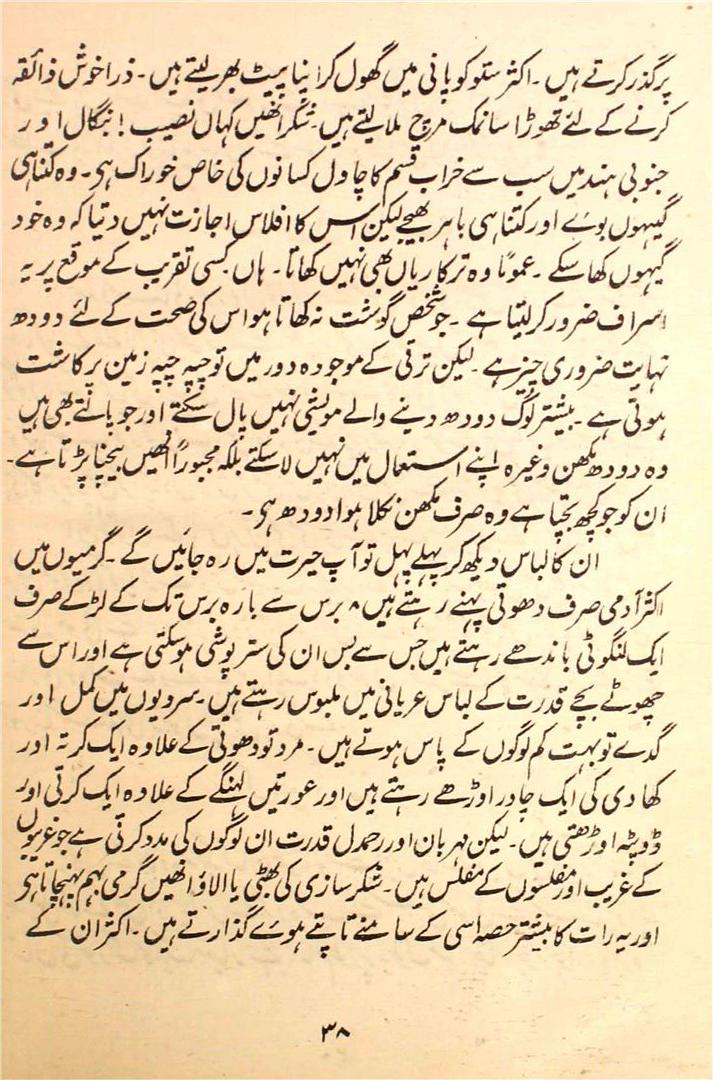 پر گذر کرتے ہیں ۔ اکثر ستو کو پانی میں گھول کر اپنا پیٹ بھر لیتے ہیں ۔ ذرا خوش ذائقہ
کرنے کے لئے تھوڑا سا نمک مرچ ملا لیتے ہیں ۔ شکر انھیں کہاں نصیب ! بنگال اور
جنوبی ہند میں سب سے خراب قسم کا چاول کسانوں کی خاص خوراک ہی ۔ وہ کتنا ہی
گیہوں بوئے اور کتنا ہی باہر بھیجے لیکن اس کا افلاس اجازت نہیں دیتا کہ وہ خود
گیہوں کھا سکے ۔ عموماً وہ ترکاریاں بھی نہیں کھاتا ۔ ہاں کسی تقریب کے موقع پر یہ
اسراف ضرور کر لیتا ہے ۔ جو شخص گوشت نہ کھاتا ہو اس کی صحت کے لئے دودھ
نہایت ضروری چیز ہے ۔ لیکن ترقی کے موجودہ دور میں تو چپہ چپہ زمین پر کاشت
ہوتی ہے ۔ بیشتر لوگ دودھ دینے والے مویشی نہیں پال سکتے اور جو پالتے بھی ہیں
وہ دودھ مکھن وغیرہ اپنے استعمال میں نہیں لا سکتے بلکہ مجبوراً انھیں بیچنا پڑتا ہے ۔
ان کو جو کچھ بچتا ہے وہ صرف مکھن نکلا ہوا دودھ ہی ۔
ان کا لباس دیکھ کر پہلے پہل تو آپ حیرت میں رہ جائیں گے ۔ گرمیوں میں
اکثر آدمی صرف دھوتی پہنے رہتے ہیں ۸ برس سے بارہ برس تک کے لڑکے صرف
ایک لنگوٹی باندھے رہتے ہیں جس سے بس ان کی ستر پوشی ہو سکتی ہے اور اس سے
چھوٹے بچے قدرت کے لباس عریانی میں ملبوس رہتے ہیں ۔ سردیوں میں کمل اور
گدے تو بہت کم لوگوں کے پاس ہوتے ہیں ۔ مرد تو دھوتی کے علاوہ ایک کرتہ اور
کھادی کی ایک چادر اوڑھے رہتے ہیں اور عورتیں لہنگے کے علاوہ ایک کرتی اور
ڈوپٹہ اوڑھتی ہیں ۔ لیکن مہربان اور رحمدل قدرت ان لوگوں کی مدد کرتی ہے جو غریبوں
کے غریب اور مفلسوں کے مفلس ہیں ۔ شکر سازی کی بھٹی یا الاؤ انھیں گرمی بہم پہنچاتا ہی
اور یہ رات کا بیشتر حصہ اسی کے سامنے تاپتے ہوئے گذارتے ہیں ۔ اکثر ان کے
۳۸